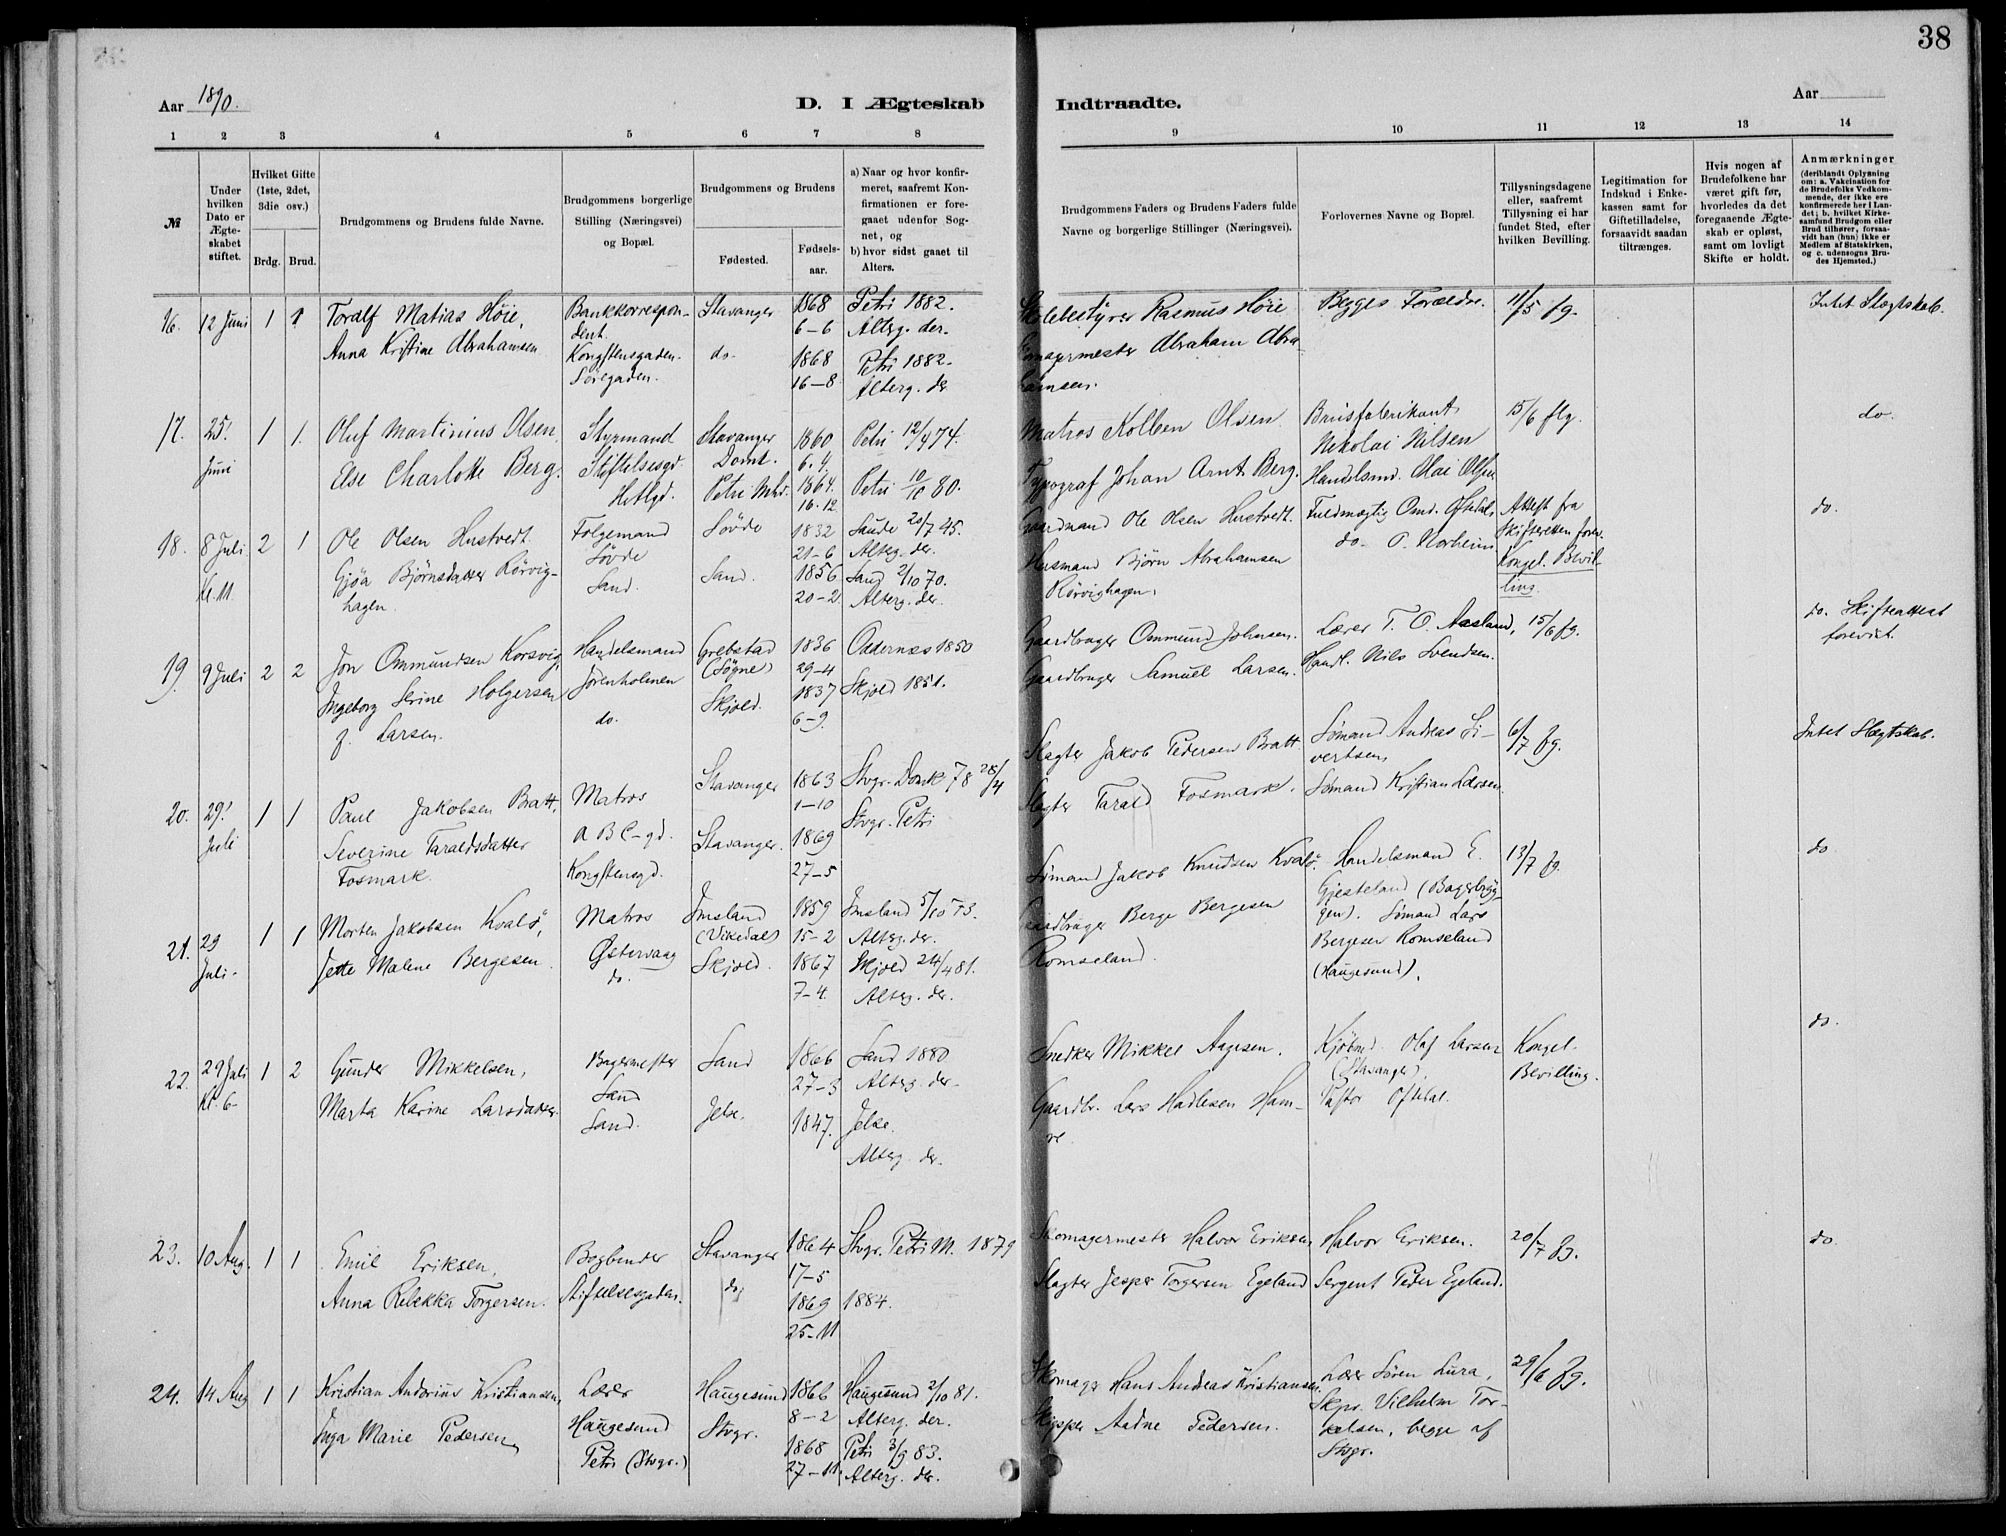 38
Aar 1890.
D. I Ægteskab Indtraadte.
Aar
1 2 3 4 5 6 7 8 9 10 11 12 13 14
№
Under hvilken Dato er Ægteskabet stiftet.
Hvilket Gifte (1ste, 2det, 3die osv.)
Brdg. Brud.
Brudgommens og Brudens fulde Navne.
Brudgommens borgerlige Stilling (Næringsvei) og Bopæl.
Brudgommens og Brudens
Fødested.
Fødselsaar.
a) Naar og hvor konfirmeret, saafremt Konfirmationen er foregaaet udenfor Sognet, og
b) hvor sidst gaaet til Alters.
Brudgommens Faders og Brudens Faders fulde Navne og borgerlige Stillinger (Næringsvei).
Forlovernes Navne og Bopæl.
Tillysningsdagene eller, saafremt Tillysning ei har fundet Sted, efter hvilken Bevilling.
Legitimation for Indskud i Enkekassen samt for Giftetilladelse, forsaavidt saadan tiltrænges.
Hvis nogen af Brudefolkene har været gift før, hvorledes da det foregaaende Ægteskab er opløst, samt om lovligt Skifte er holdt.
Anmærkninger (deriblandt Oplysning om: a. Vakcination for de Brudefolks Vedkommende, der ikke ere konfirmerede her i Landet; b. hvilket Kirkesamfund Brudgom eller Brud tilhører, forsaavidt han (hun) ikke er Medlem af Statskirken, og c. udensogns Brudes Hjemsted.)
16. 12 Juni 1 1 Toralf Matias Höie, Bankkorrespondent Kongstensgaden. Stavanger 1868 6-6 Petri 1882. Alterg. der. Skolebestyrer Rasmus Höie Begges Forældre. 11/5 fg. Intet Slægtskab.
Anna Kristine Abrahamsen Söregaden. do. 1868 16-8 Petri 1882. Alterg. der Skomagermester Abraham Abrahamsen.
17. 25' Juni 1 1. Oluf Martinius Olsen, Styrmand Stiftelsesgd. Stavanger Domk. 1860 6.4. Petri 12/4 74. Matros Kolben Olsen Brusfabrikant Nikolai Nilsen 15/6 flg. do.
Else Charlotte Berg. Hetlgd. Petri Mhd. 1864. 16.12 Petri 10/10 80. Typograf Johan Arnt Berg. Handelsmd. Olai Olsen
18. 8 Juli Kl. 11 2 1 Ole Olsen Hustvedt Folgemand Sövde Sövde 1832 21-6 Saude 20/7 45. Alterg. der. Gaardmand Ole Olsen Hustvedt. Fuldmægtig Omd. Oftedal, Attest fra Skifteretten forev. Kongel. Bevilling. do.
Gjöa Björnsdatter Rörvighagen. Sand. Sand. 1856 20-2 Sand 2/10 70. Alterg. der. Husmand Björn Abrahamsen Rörvighagen. do. P. Norheim
19. 9 Juli 2 2 Jon Ommundsen Korsvig, Handelsmand Jörenholmen Grebstad (Sögne) 1836 29-4 Oddernes 1850 Gaardbruger Ommund Johnsen. Lærer T. O. Aasland, 15/6 fg. do. Skifteattest forevist.
Ingeborg Serine Holgersen f. Larsen. do. Skjold. 1837 6-9. Skjold 1851. Gaardbruger Samuel Larsen. Handl. Nils Svendsen.
20. 29' Juli 1 1 Paul Jakobsen Bratt, Matros ABC-gd. Stavanger 1863 1-10 Stvgr. Domk 78 28/4 Slagter Jakob Pedersen Bratt. Sömand Andreas Sivertsen 6/7 fg. Intet Slægtskab.
Severine Taraldsdatter Fosmark. Kongstensgd. Stavanger. 1869 27-5 Stvgr. Petri Slagter Tarald Fosmark. Sömand Kristian Larsen.
21. 29 Juli. 1 1 Morten Jakobsen Kvalö, Matros Østervaag Imsland (Vikedal) 1859 15-2 Imsland 5/10 73. Alterg. der. Sömand Jakob Knudsen Kvalö. Handelsmand E. Gjesteland (Bagerbryggen). 13/7 fg. do
Jette Malene Bergesen. do. Skjold. 1867 7-4. Skjold 24/4 81. Alterg. der. Gaardbruger Berge Bergesen Romseland. Sömand Lars Bergesen Romseland (Haugesund).
22. 29 Juli Kl. 6 1 2 Gunder Mikkelsen, Bagermester Sand Sand 1866 27-3 Sand 1880 Alterg. der. Snedker Mikkel Aagesen. Kjöbmd. Olaf Larsen (Stavanger). Kongel. Bevilling. do.
Marta Karine Larsdatter. Sand. Jelse. 1847. Jelse. Alterg. der. Gaardbr. Lars Hadlesen Hamre. Pastor Oftedal.
23. 10 Aug. 1 1 Emil Eriksen, Bogbinder Stavanger 1864 17-5 Stvgr. Petri M. 1879 Skomagermester Halvor Eriksen, Halvor Eriksen. 20/7 fg. do
Anna Rebekka Torgersen. Stiftelsesgaden. do. 1869 25-11 1884. Slagter Jesper Torgersen Egeland Sergent Peder Egeland.
24. 14 Aug 1 1 Kristian Andorius Kristiansen, Lærer Haugesund Haugesund 1866 8-2 Haugesund 2/10 81. Alterg. der. Skomager Hans Andreas Kristiansen. Lærer Sören Lura, 29/6 fg.
Inga Marie Pedersen, Petri (Stvgr.) Stvgr. 1868 27-11 Petri 3/9 83. Alterg. der. Skipper Aadne Pedersen. Skpr. Vilhelm Torkelsen, begge af Stvgr.